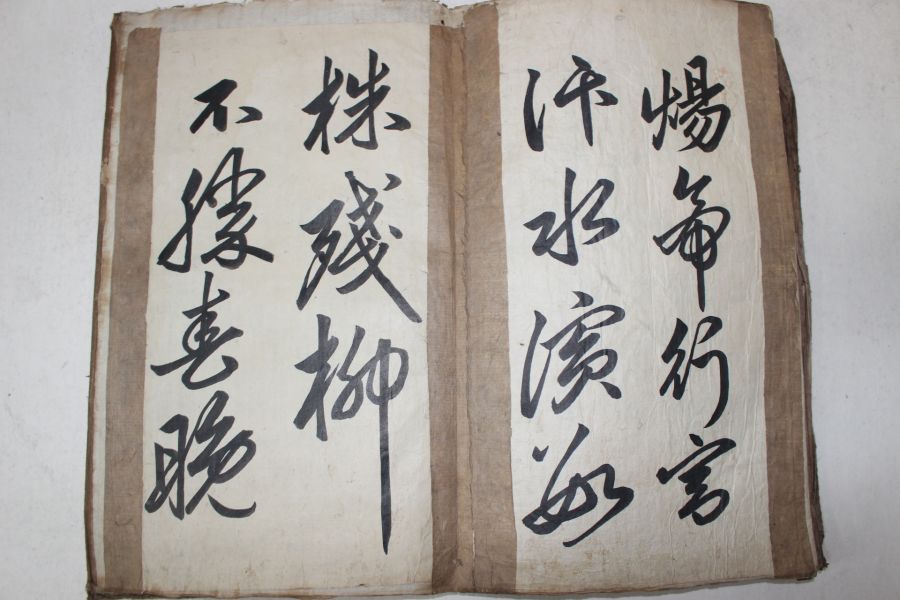 煬帝行宮
汴水濱數
株殘柳
不勝春晚